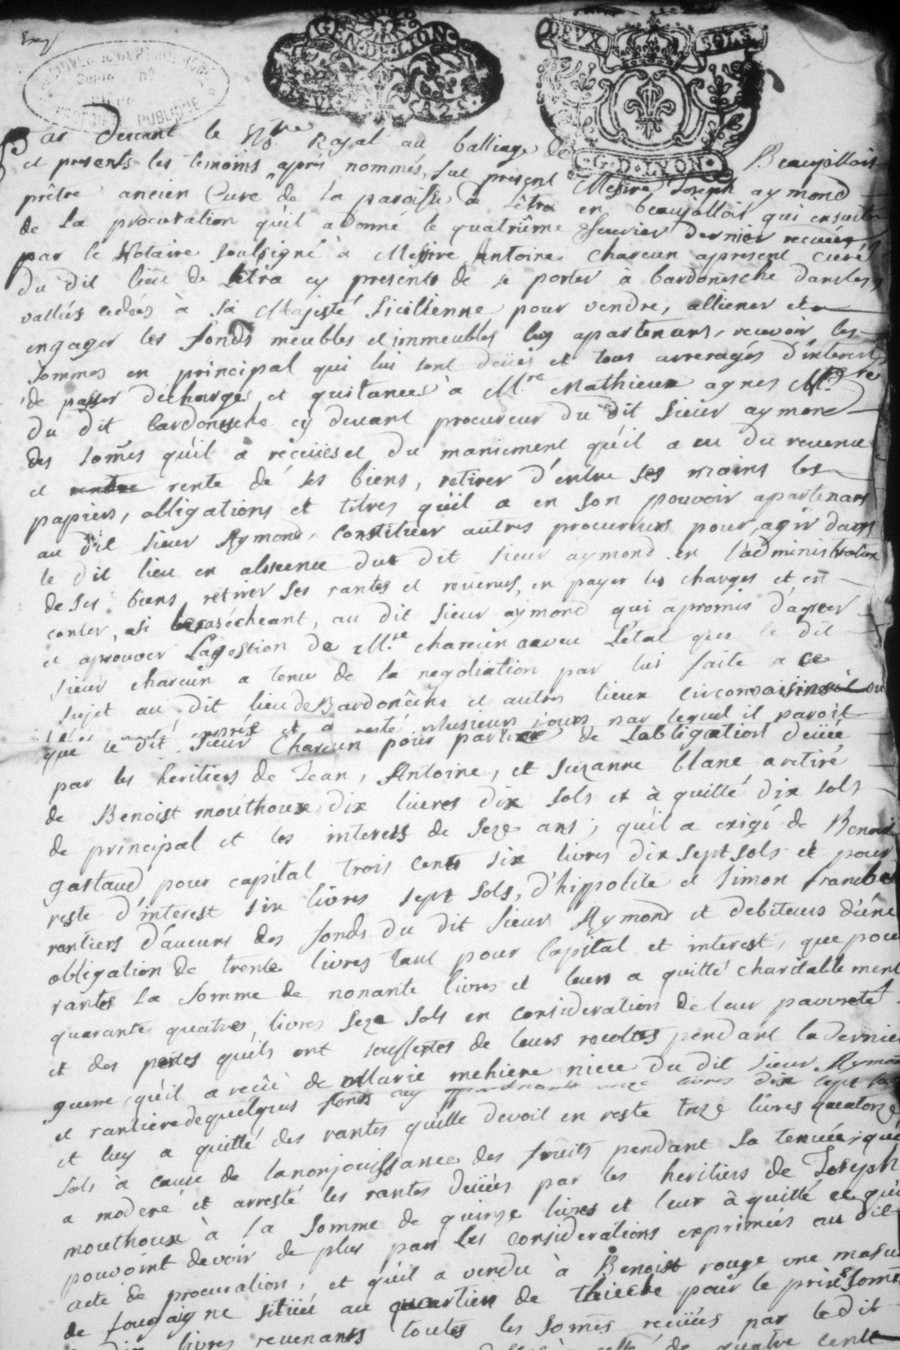 GEN·DE·LYON
DEUX SOLS
G·D·LYON
Par devant le Nre Royal au balliage de Beaujollois
et presents les temoins apres nommés, fut present Messire Joseph aymond
prêtre ancien Curé de La paroisse de Létra en beaujollois qui ensuitte
de La procuration qu'il a donné le quatriême fevrier dernier receüe
par le Notaire soussigné à Messire Antoine Charcun apresent curé
du dit lieu de Létra cy present de se porter à bardonesche dans les
vallées cedées à Sa Majesté Sicilienne pour vendre, alliener et
engager les fonds meubles et immeubles luy apartenans, recevoir les
sommes en principal qui lui sont deües et tous arrerages d'interest
de passer décharges et quitance à Mre Mathieux agnes
du dit bardonesche cy devant procureur du dit Sieur aymond
des somes qu'il a receües et du maniement qu'il a eu du revenu
et rente de ses biens, retirer d'entre ses mains les
papiers, obligations et titres qu'il a en son pouvoir apartenans
au dit Sieur Aymond, Constituer autres procureurs pour agir dans
le dit lieu en absence du dit Sieur aymond en l'administration
de ses biens, retirer ses rantes et revenus, en payer les charges et en
conter, si le cas échéant, au dit Sieur aymond qui a promis d'agreer
et aprouver La gestion de Mre charcun a veu L'état que le dit
Sieur charcun a tenu de la negotiation par lui faite a ce
sujet au dit lieu de Bardonêche et autres lieux circonvoisins
et a resté plusieurs jours par lequel il paroit
que le dit Sieur Charcun pour partie de L'obligation deüe
par les heritiers de Jean, Antoine, et Suzanne blanc a retiré
de Benoist mouthoux dix livres dix sols et à quitté dix sols
de principal et les interests de seze ans; qu'il a exigé de Benoist
gastaud pour capital trois cents six livres dix sept sols et pour
reste d'interest six livres sept sols, d'hippolite et Simon
rantiers d'aucuns des fonds du dit Sieur Aymond et debiteurs d'une
obligation de trente livres tant pour Capital et interest, que pour
rantes La Somme de nonante livres et leurs a quitté charitablement
quarante quatres livres seze sols en consideration de leur pauvreté
et des pertes qu'ils ont souffertes de leurs recoltes pendant la derniere
guerre, qu'il a receu de Marie mehiere niece du dit Sieur Aymond
et rantiere de quelques fonds livres dix sept sols
et luy a quitté des rantes qu'elle devoit en reste treze livres quatorze
sols à cause de la non jouissance des fruits pendant sa tenüe; que
a moderé et arresté les rantes deües par les heritiers de Joseph
mouthoux à La Somme de quinze livres et leur à quitté ce qu'ils
pouvoint devoir de plus par Les considerations exprimées au dit
acte de procuration, et qu'il a vendu à Benoist rouge une masure
de situé au quartier de pour le prix et somme
livres revenants toutes les somes receües par le dit
de quatre cents